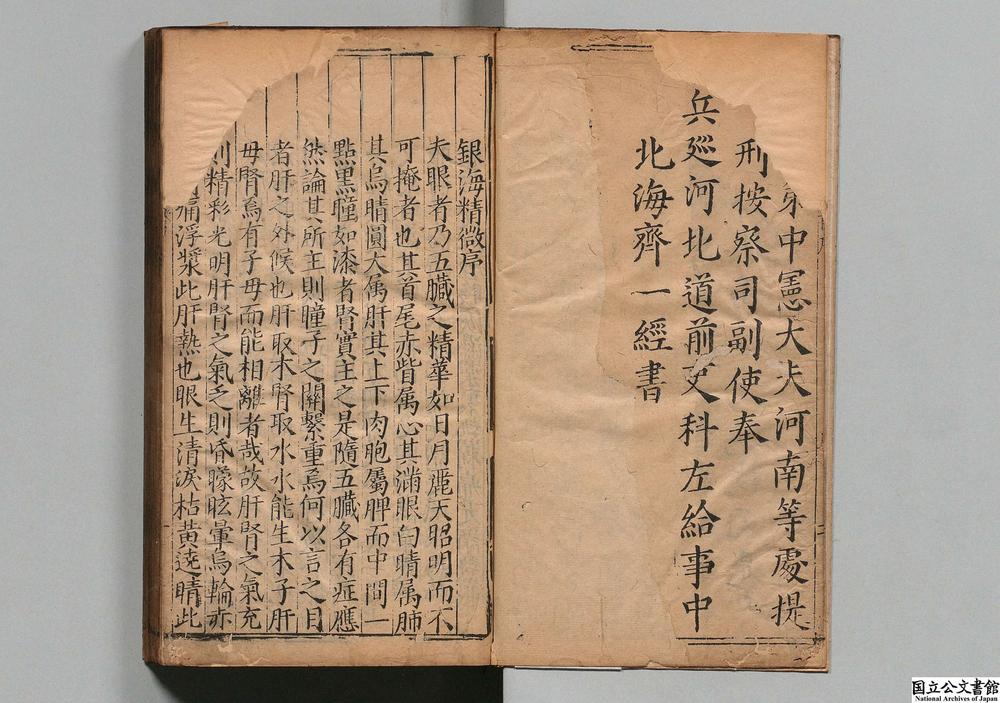 第中憲大夫河南等處提
刑按察司副使奉
兵廵河北道前吏科左給事中
北海齊一經書
銀海精微序
夫眼者乃五臟之精華如日月麗天昭明而不
可掩者也其首尾赤眥属心其滿眼白睛属肺
其烏睛圓大属肝其上下肉胞屬脾而中間一
點黒瞳如漆者腎實主之是隨五臟各有症應
然論其所主則瞳子之關繫重焉何以言之目
者肝之外候也肝取木腎取水水能生木子肝
母腎焉有子母而能相離者哉故肝腎之氣充
則精彩光明肝腎之氣乏則昏矇眩暈烏輪赤
痛浮漿此肝熱也眼生清淚枯黄遶睛此
国立公文書館
National Archives of Japan